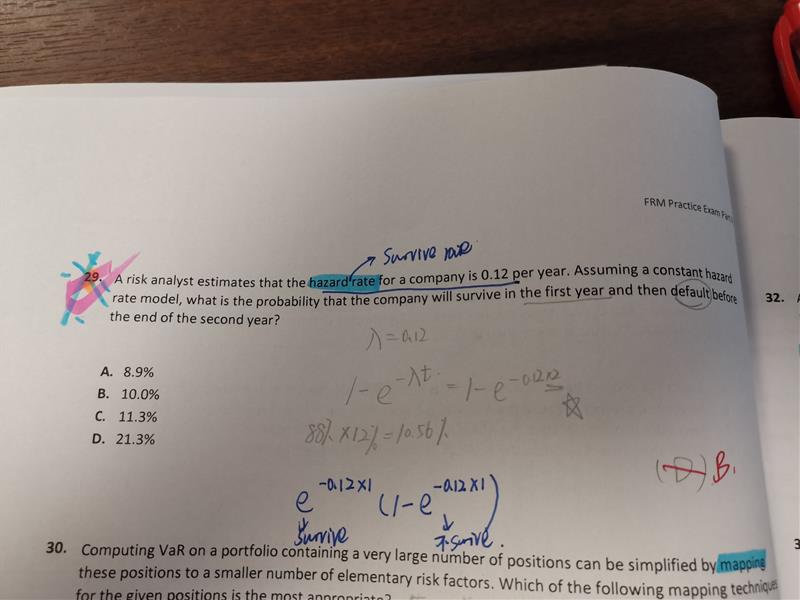 FRM Practice Exam Part
Survive rate
29. A risk analyst estimates that the hazard rate for a company is 0.12 per year. Assuming a constant hazard
rate model, what is the probability that the company will survive in the first year and then default before
the end of the second year?
32.
λ=0.12
A. 8.9%
B. 10.0%
C. 11.3%
D. 21.3%
1-e^-λt = 1-e^-0.12×2
88% × 12% = 10.56%
(D) B.
e^-0.12×1 (1-e^-0.12×1)
survive 不survive.
30. Computing VaR on a portfolio containing a very large number of positions can be simplified by mapping
these positions to a smaller number of elementary risk factors. Which of the following mapping techniques
for the given positions is the most appropriate?